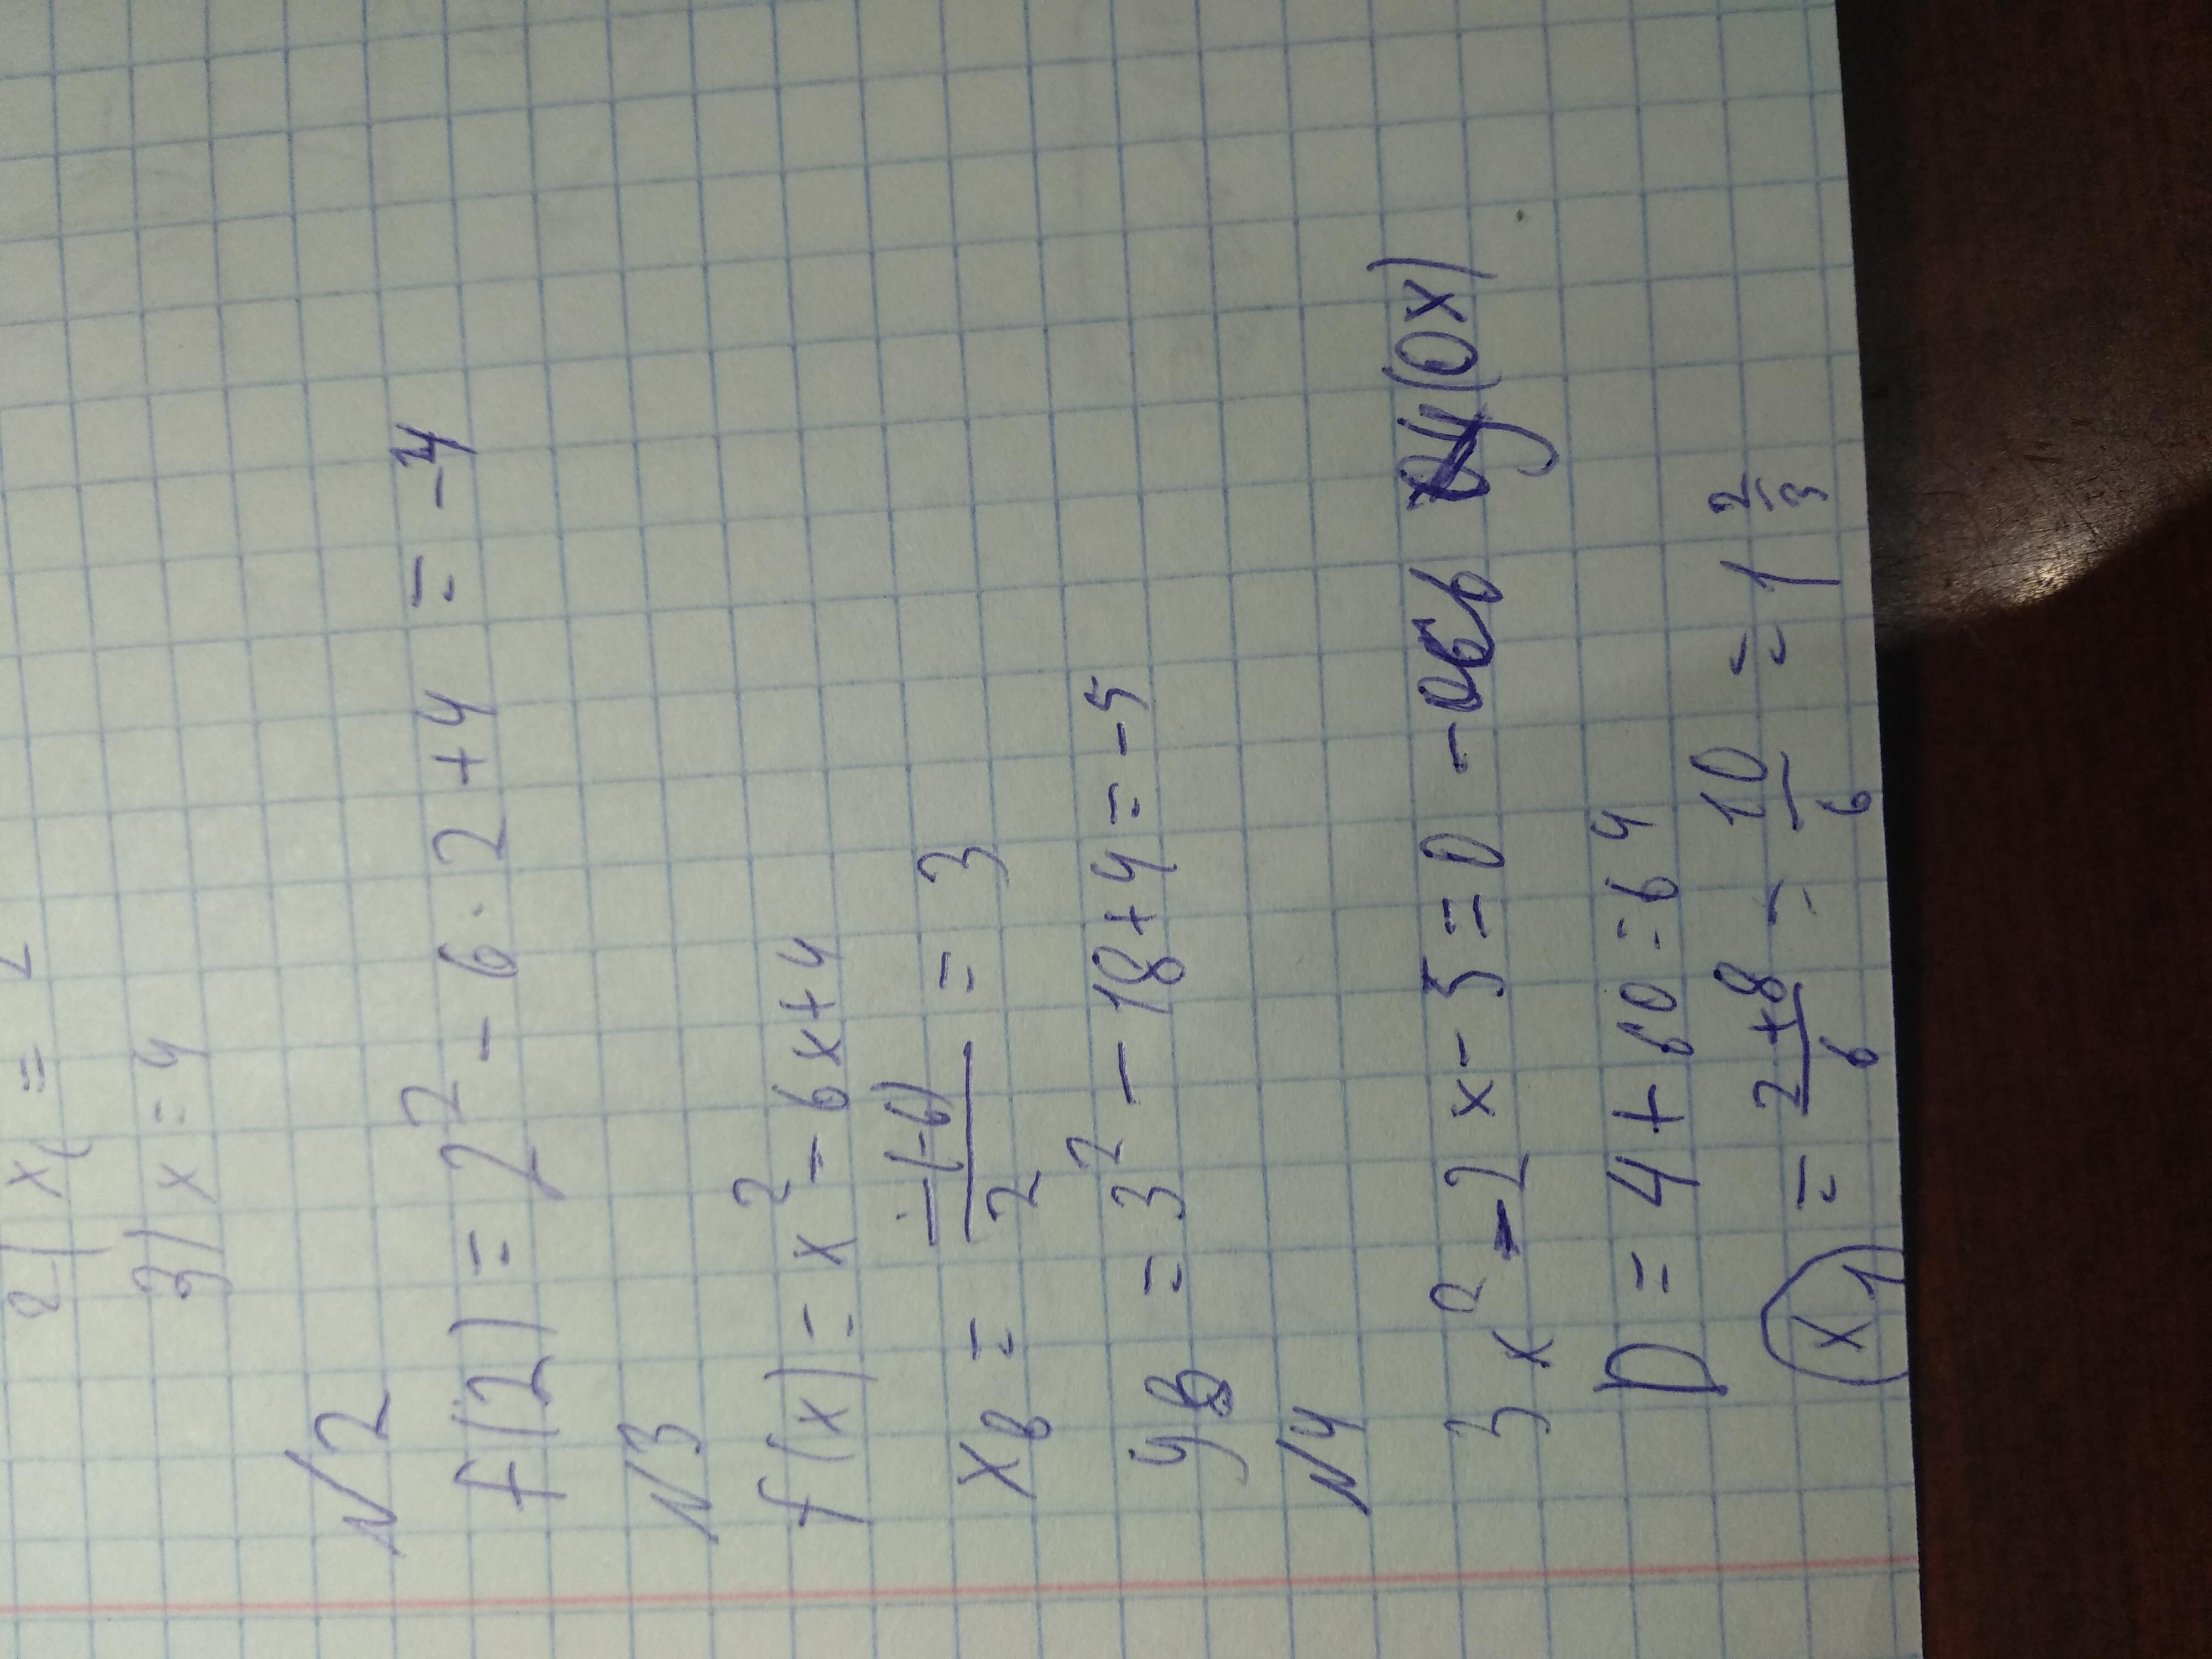 2) x₁ =
3) x = 4
N2
f(2) = 2² - 6 · 2 + 4 = -4
N3
f(x) = x² - 6x + 4
xв = -(-6)/2 = 3
yв = 3² - 18 + 4 = -5
N4
3x² - 2x - 5 = 0 - ось (Ox)
D = 4 + 60 = 64
x₁ = (2+8)/6 = 10/6 = 1 2/3